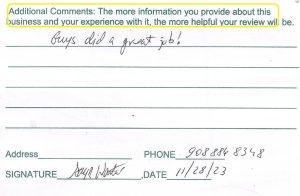 Additional Comments: The more information you provide about this
business and your experience with it, the more helpful your review will be.
Guys did a great job!
Address PHONE 908 884 8348
SIGNATURE DATE 11/28/23